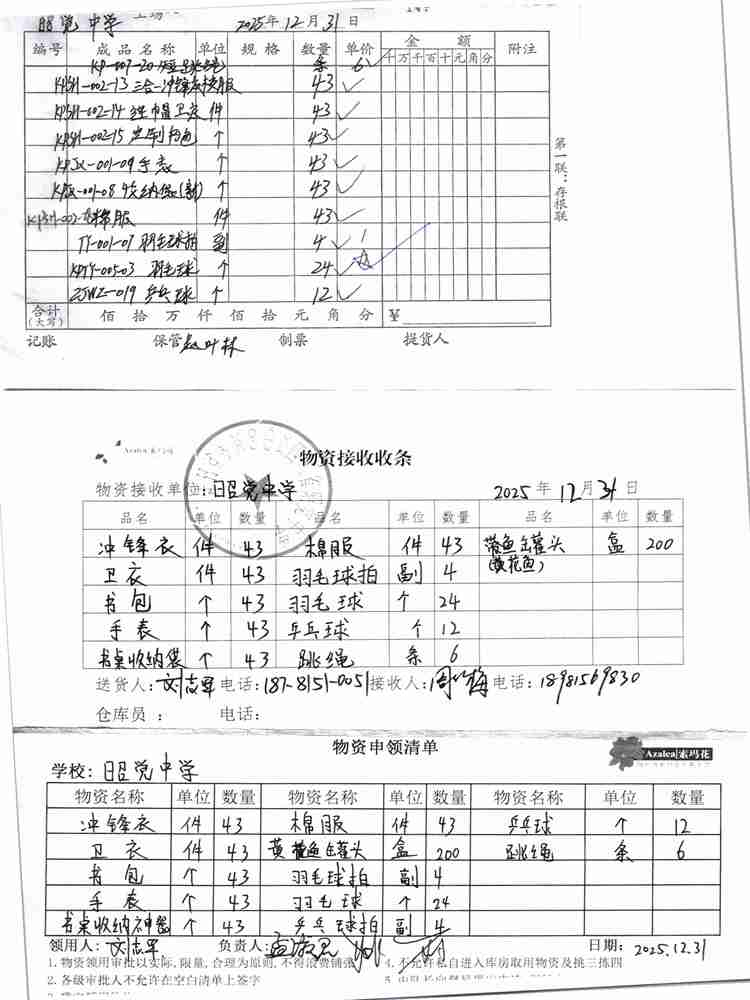 昭觉中学 2025年12月31日
编号 成品名称 单位 规格 数量 单价 金额 附注
千 万 千 百 十 元 角 分
条 6
KPSH-002-13 三合一冲锋衣 43
KPSH-002-14 连帽卫衣 件 43
KPSH-002-15 定制书包 个 43
KPJX-001-09 手表 个 43
收纳袋(新) 个 43
棉服 件 43
TY-001-07 羽毛球拍 副 4
KPTY-005-03 羽毛球 个 24
ZJWZ-019 乒乓球 个 12
合计(大写) 佰 拾 万 仟 佰 拾 元 角 分 ¥
第一联:存根联
记账 保管 赵叶林 制票 提货人
Azalea 索玛花
物资接收收条
物资接收单位:昭觉中学 2025年12月31日
品名 单位 数量 品名 单位 数量 品名 单位 数量
冲锋衣 件 43 棉服 件 43 带鱼罐头 盒 200
卫衣 件 43 羽毛球拍 副 4 (黄花鱼)
书包 个 43 羽毛球 个 24
手表 个 43 乒乓球 个 12
书桌收纳袋 个 43 跳绳 条 6
送货人:刘志军 电话:187-8151-0051 接收人: 电话:18981569830
仓库员: 电话:
物资申领清单
Azalea 索玛花
学校:昭觉中学
物资名称 单位 数量 物资名称 单位 数量 物资名称 单位 数量
冲锋衣 件 43 棉服 件 43 乒乓球 个 12
卫衣 件 43 黄 鱼罐头 盒 200 跳绳 条 6
书包 个 43 羽毛球拍 副 4
手表 个 43 羽毛球 个 24
书桌收纳神器 个 43 乒乓球拍 副 4
领用人:刘志军 负责人: 日期:2025.12.31
1.物资领用审批以实际,限量,合理为原则,不得浪费铺张 4.不允许私自进入库房取用物资及挑三拣四
2.各级审批人不允许在空白清单上签字